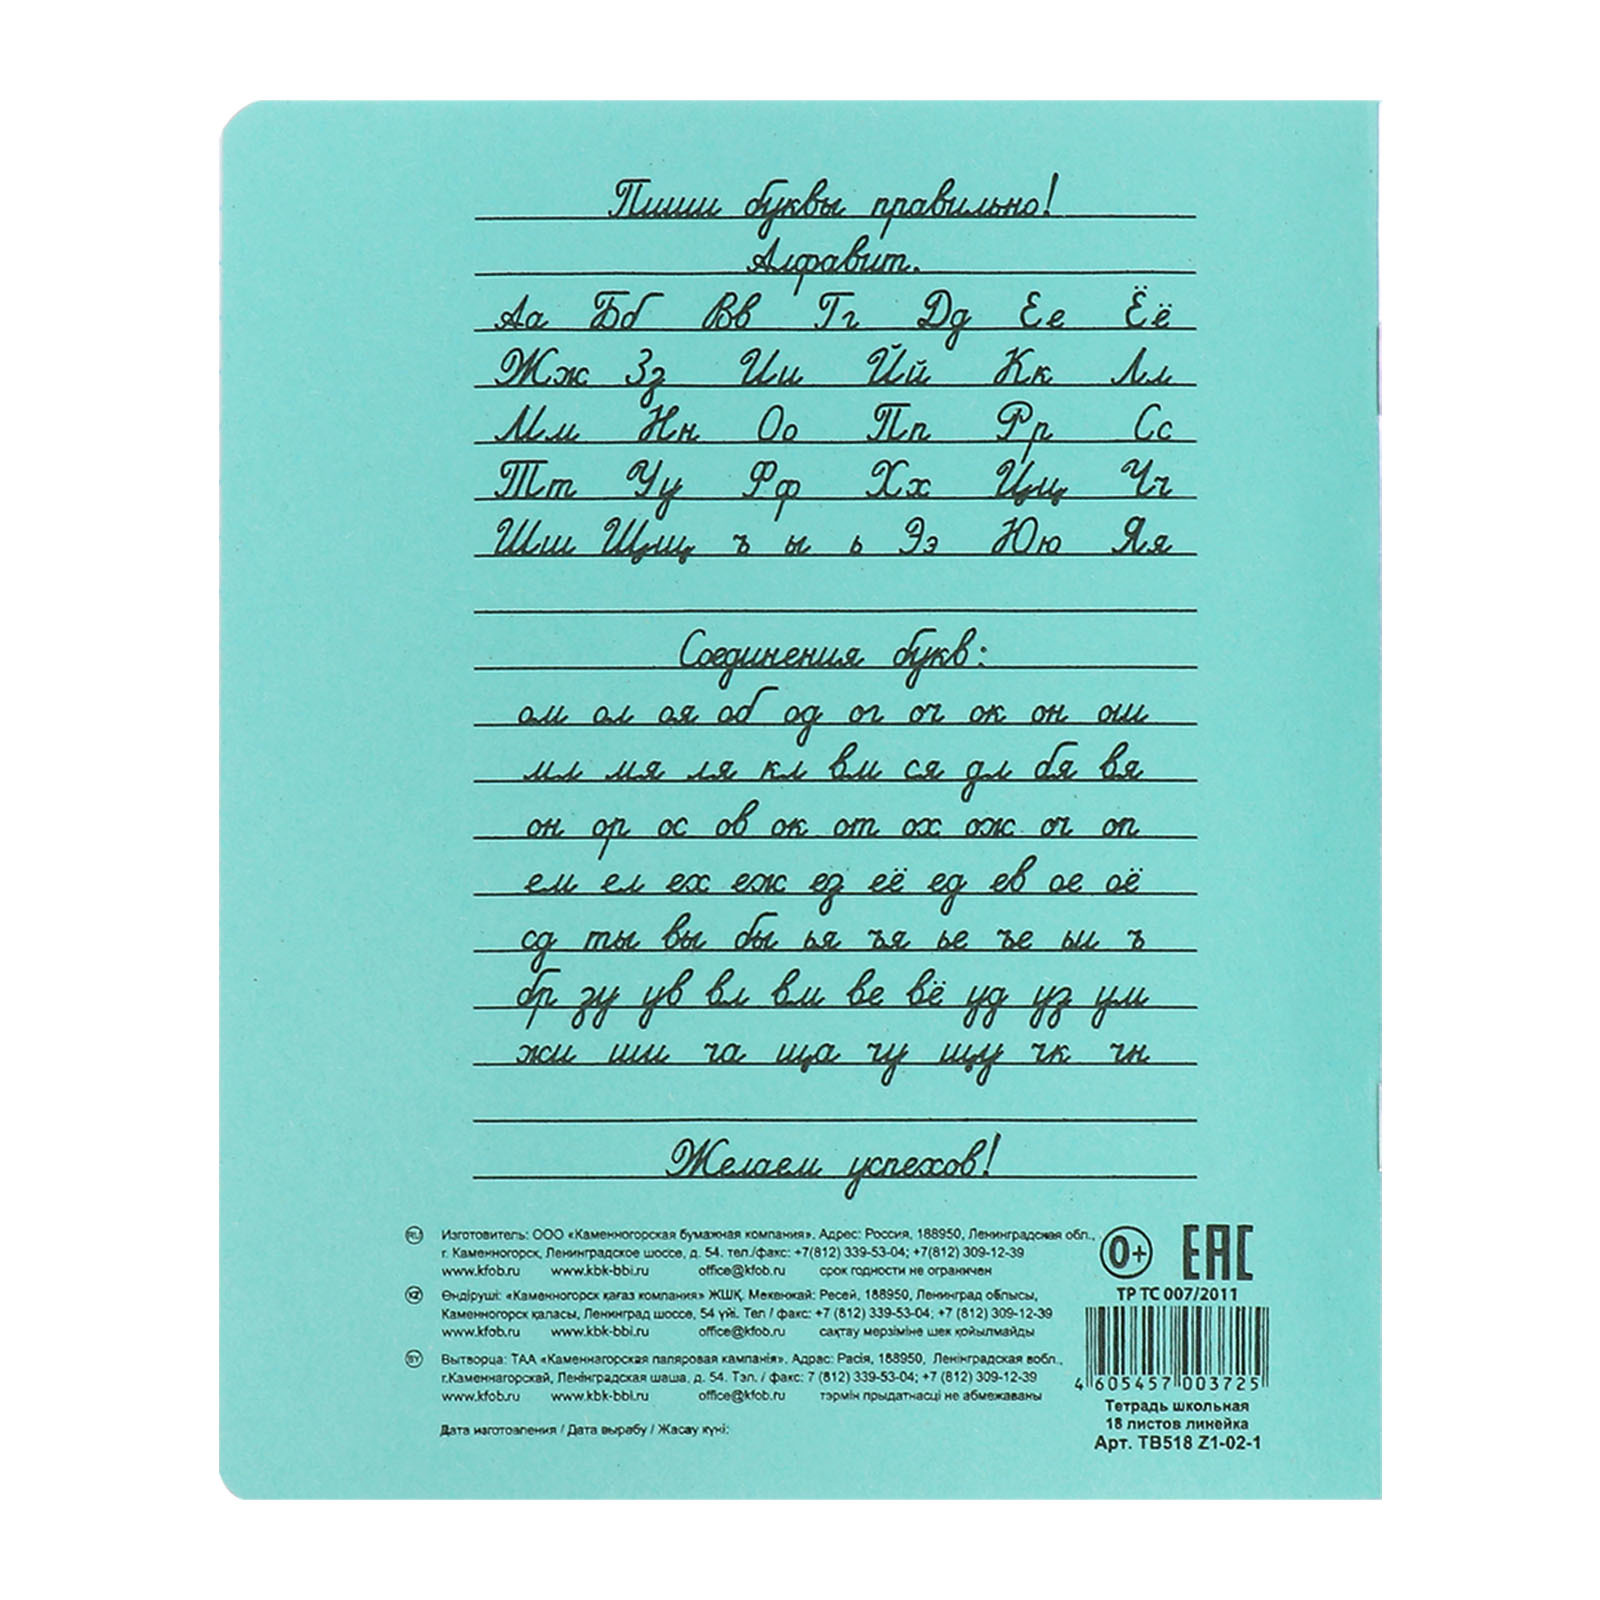 Пиши буквы правильно!
Алфавит.
Аа Бб Вв Гг Дд Ее Ёё
Жж Зз Ии Йй Кк Лл
Мм Нн Оо Пп Рр Сс
Тт Уу Фф Хх Цц Чч
Шш Щщ ъ ы ь Ээ Юю Яя
Соединения букв:
ом ол оя об од ог оч ок он ош
мл мя ля кл вм ся дл бя вя
он ор ос ов ок от ох ож оч оп
ем ел ех еж ез её ед ев ое оё
сд ты вы бы ья ъя ье ъе ьи ъ
бр зу ув вл вм ве вё уд уз ум
жи ши ча ща чу щу чк чн
Желаем успехов!
RU Изготовитель: ООО «Каменногорская бумажная компания». Адрес: Россия, 188950, Ленинградская обл.,
г. Каменногорск, Ленинградское шоссе, д. 54. тел./факс: +7(812) 339-53-04; +7(812) 309-12-39
www.kfob.ru www.kbk-bbi.ru office@kfob.ru срок годности не ограничен
KZ Өндіруші: «Каменногорск қағаз компания» ЖШҚ. Мекенжай: Ресей, 188950, Ленинград облысы,
Каменногорск қаласы, Ленинград шоссе, 54 үйі. Тел / факс: +7 (812) 339-53-04; +7 (812) 309-12-39
www.kfob.ru www.kbk-bbi.ru office@kfob.ru сақтау мерзіміне шек қойылмайды
BY Вытворца: ТАА «Каменнагорская папяровая кампанія». Адрас: Расія, 188950, Ленінградская вобл.,
г.Каменнагорскай, Ленінградская шаша, д. 54. Тэл. / факс: 7 (812) 339-53-04; +7 (812) 309-12-39
www.kfob.ru www.kbk-bbi.ru office@kfob.ru тэрмін прыдатнасці не абмежаваны
Дата изготовления / Дата вырабу / Жасау күні:
0+ EAC
ТР ТС 007/2011
4 605457 003725
Тетрадь школьная
18 листов линейка
Арт. ТВ518 Z1-02-1